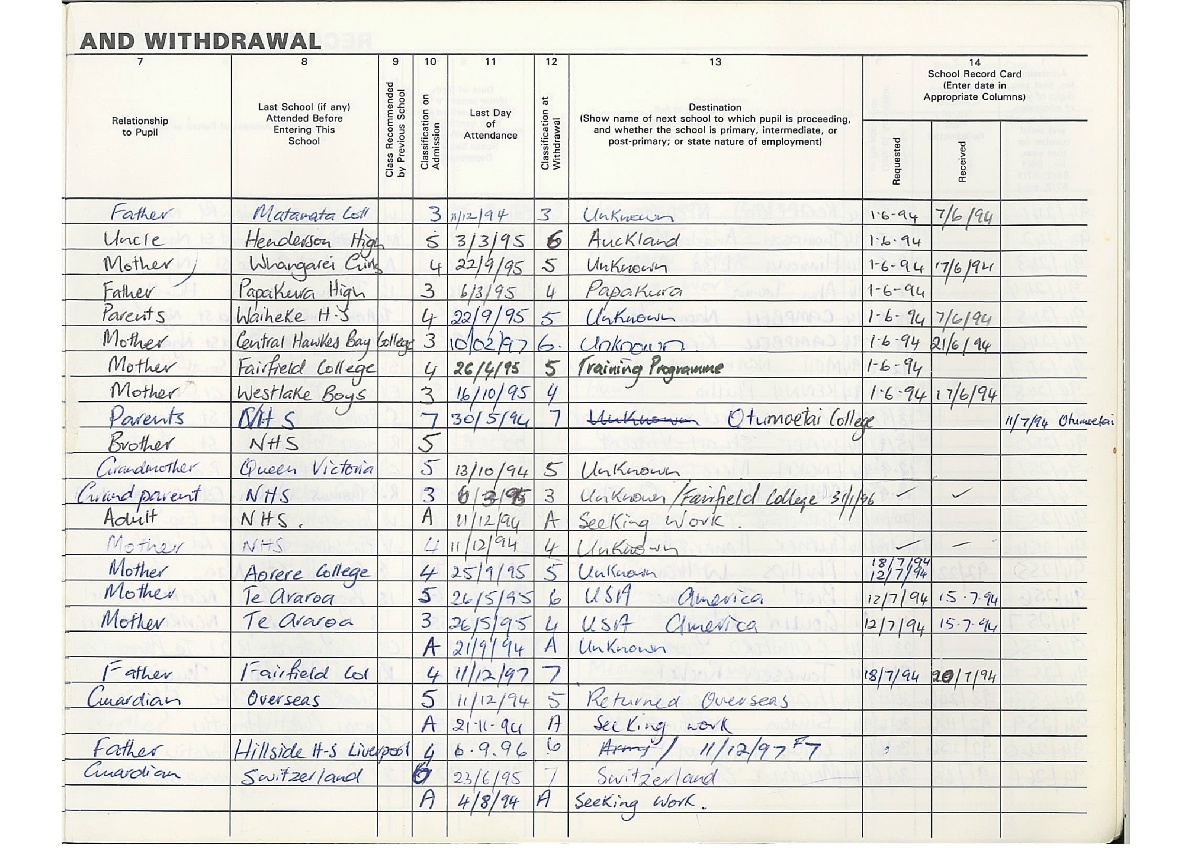 AND WITHDRAWAL
7 8 9 10 11 12 13 14
Relationship to Pupil
Last School (if any) Attended Before Entering This School
Class Recommended by Previous School
Classification on Admission
Last Day of Attendance
Classification at Withdrawal
Destination
(Show name of next school to which pupil is proceeding, and whether the school is primary, intermediate, or post-primary; or state nature of employment)
School Record Card
(Enter date in Appropriate Columns)
Requested
Received
Father Matamata Coll 3 11/12/94 3 Unknown 1-6-94 7/6/94
Uncle Henderson High 5 3/3/95 6 Auckland 1-6-94
Mother Whangarei Girls 4 22/9/95 5 Unknown 1-6-94 17/6/94
Father Papakura High 3 6/3/95 4 Papakura 1-6-94
Parents Waiheke H-S 4 22/9/95 5 Unknown 1-6-94 7/6/94
Mother Central Hawkes Bay College 3 10/02/97 6. Unknown. 1-6-94 21/6/94
Mother Fairfield College 4 26/4/95 5 Training Programme 1-6-94
Mother Westlake Boys 3 16/10/95 4 1-6-94 17/6/94
Parents NHS 7 30/5/94 7 Unknown Otumoetai College 11/7/94 Otumoetai
Brother NHS 5
Grandmother Queen Victoria 5 13/10/94 5 Unknown
Grandparent NHS 3 6/3/95 3 Unknown/Fairfield College 31/1/96
Adult NHS. A 11/12/94 A Seeking Work.
Mother NHS 4 11/12/94 4 Unknown
18/7/94
Mother Aorere College 4 25/9/95 5 Unknown 12/7/94
Mother Te Araroa 5 26/5/95 6 USA America 12/7/94 15-7-94
Mother Te Araroa 3 26/5/95 4 USA America 12/7/94 15-7-94
A 21/9/94 A Unknown
Father Fairfield Col 4 11/12/97 7 18/7/94 20/7/94
Guardian Overseas 5 11/12/94 5 Returned Overseas
A 21-11-94 A Seeking work
Father Hillside H-S Liverpool 4 6.9.96 6 Army / 11/12/97 F7
Guardian Switzerland 6 23/6/95 7 Switzerland
A 4/8/94 A Seeking Work.